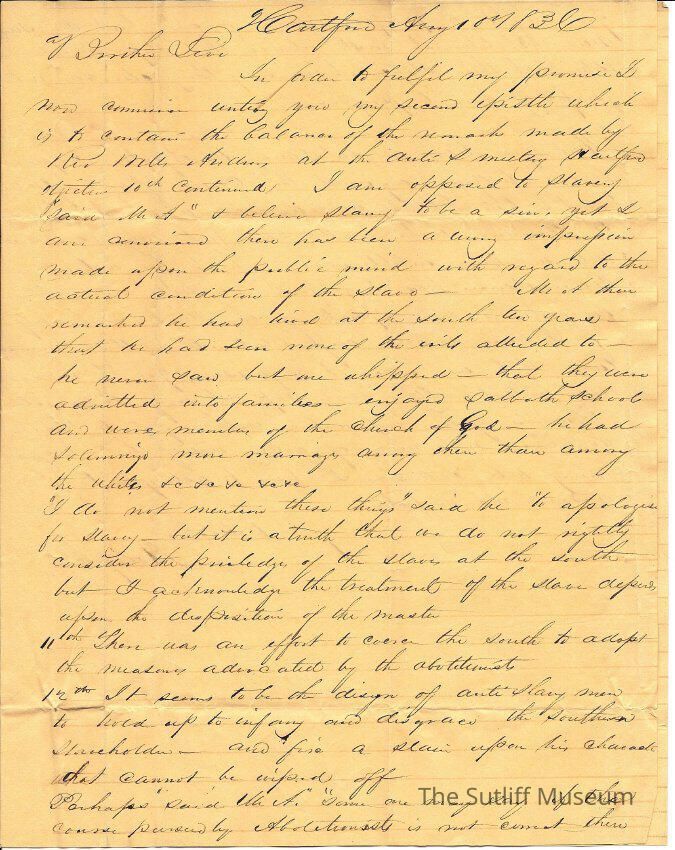 Hartford Aug 10th 1836
Brother Levi
In order to fulfil my promise I
now commence writing you my second epistle which
is to contain the balance of the remarks made by
Rev Wells Andrews at the anti S meeting Hartford
10th continued I am opposed to slavery
"said Mr A" & believe slavery to be a sin, yet I
am convinced there has been a wrong impression
made upon the public mind with regard to the
actual condition of the slave — Mr A then
remarked he had lived at the south ten years —
that he had seen none of the evils alluded to —
he never saw but one whipped — that they were
admitted into families — enjoyed sabbath schools
and were members of the church of God — he had
solemnized more marriages among them than among
the whites &c &c &c &c &c
"I do not mention these things" said he "to apologise
for slavery — but it is a truth that we do not rightly
consider the priviledges of the slaves at the south —
but I acknowledge the treatment of the slave depends
upon the disposition of the master
11th There was an effort to coerce the south to adopt
the measures advocated by the abolitionists
12th It seems to be the design of anti slavery men
to hold up to infamy and disgrace the southern
slaveholder — and fix a stain upon his character
that cannot be wiped off
Perhaps" said Mr A. "some one may say if the
course pursued by Abolitionists is not correct there
The Sutliff Museum